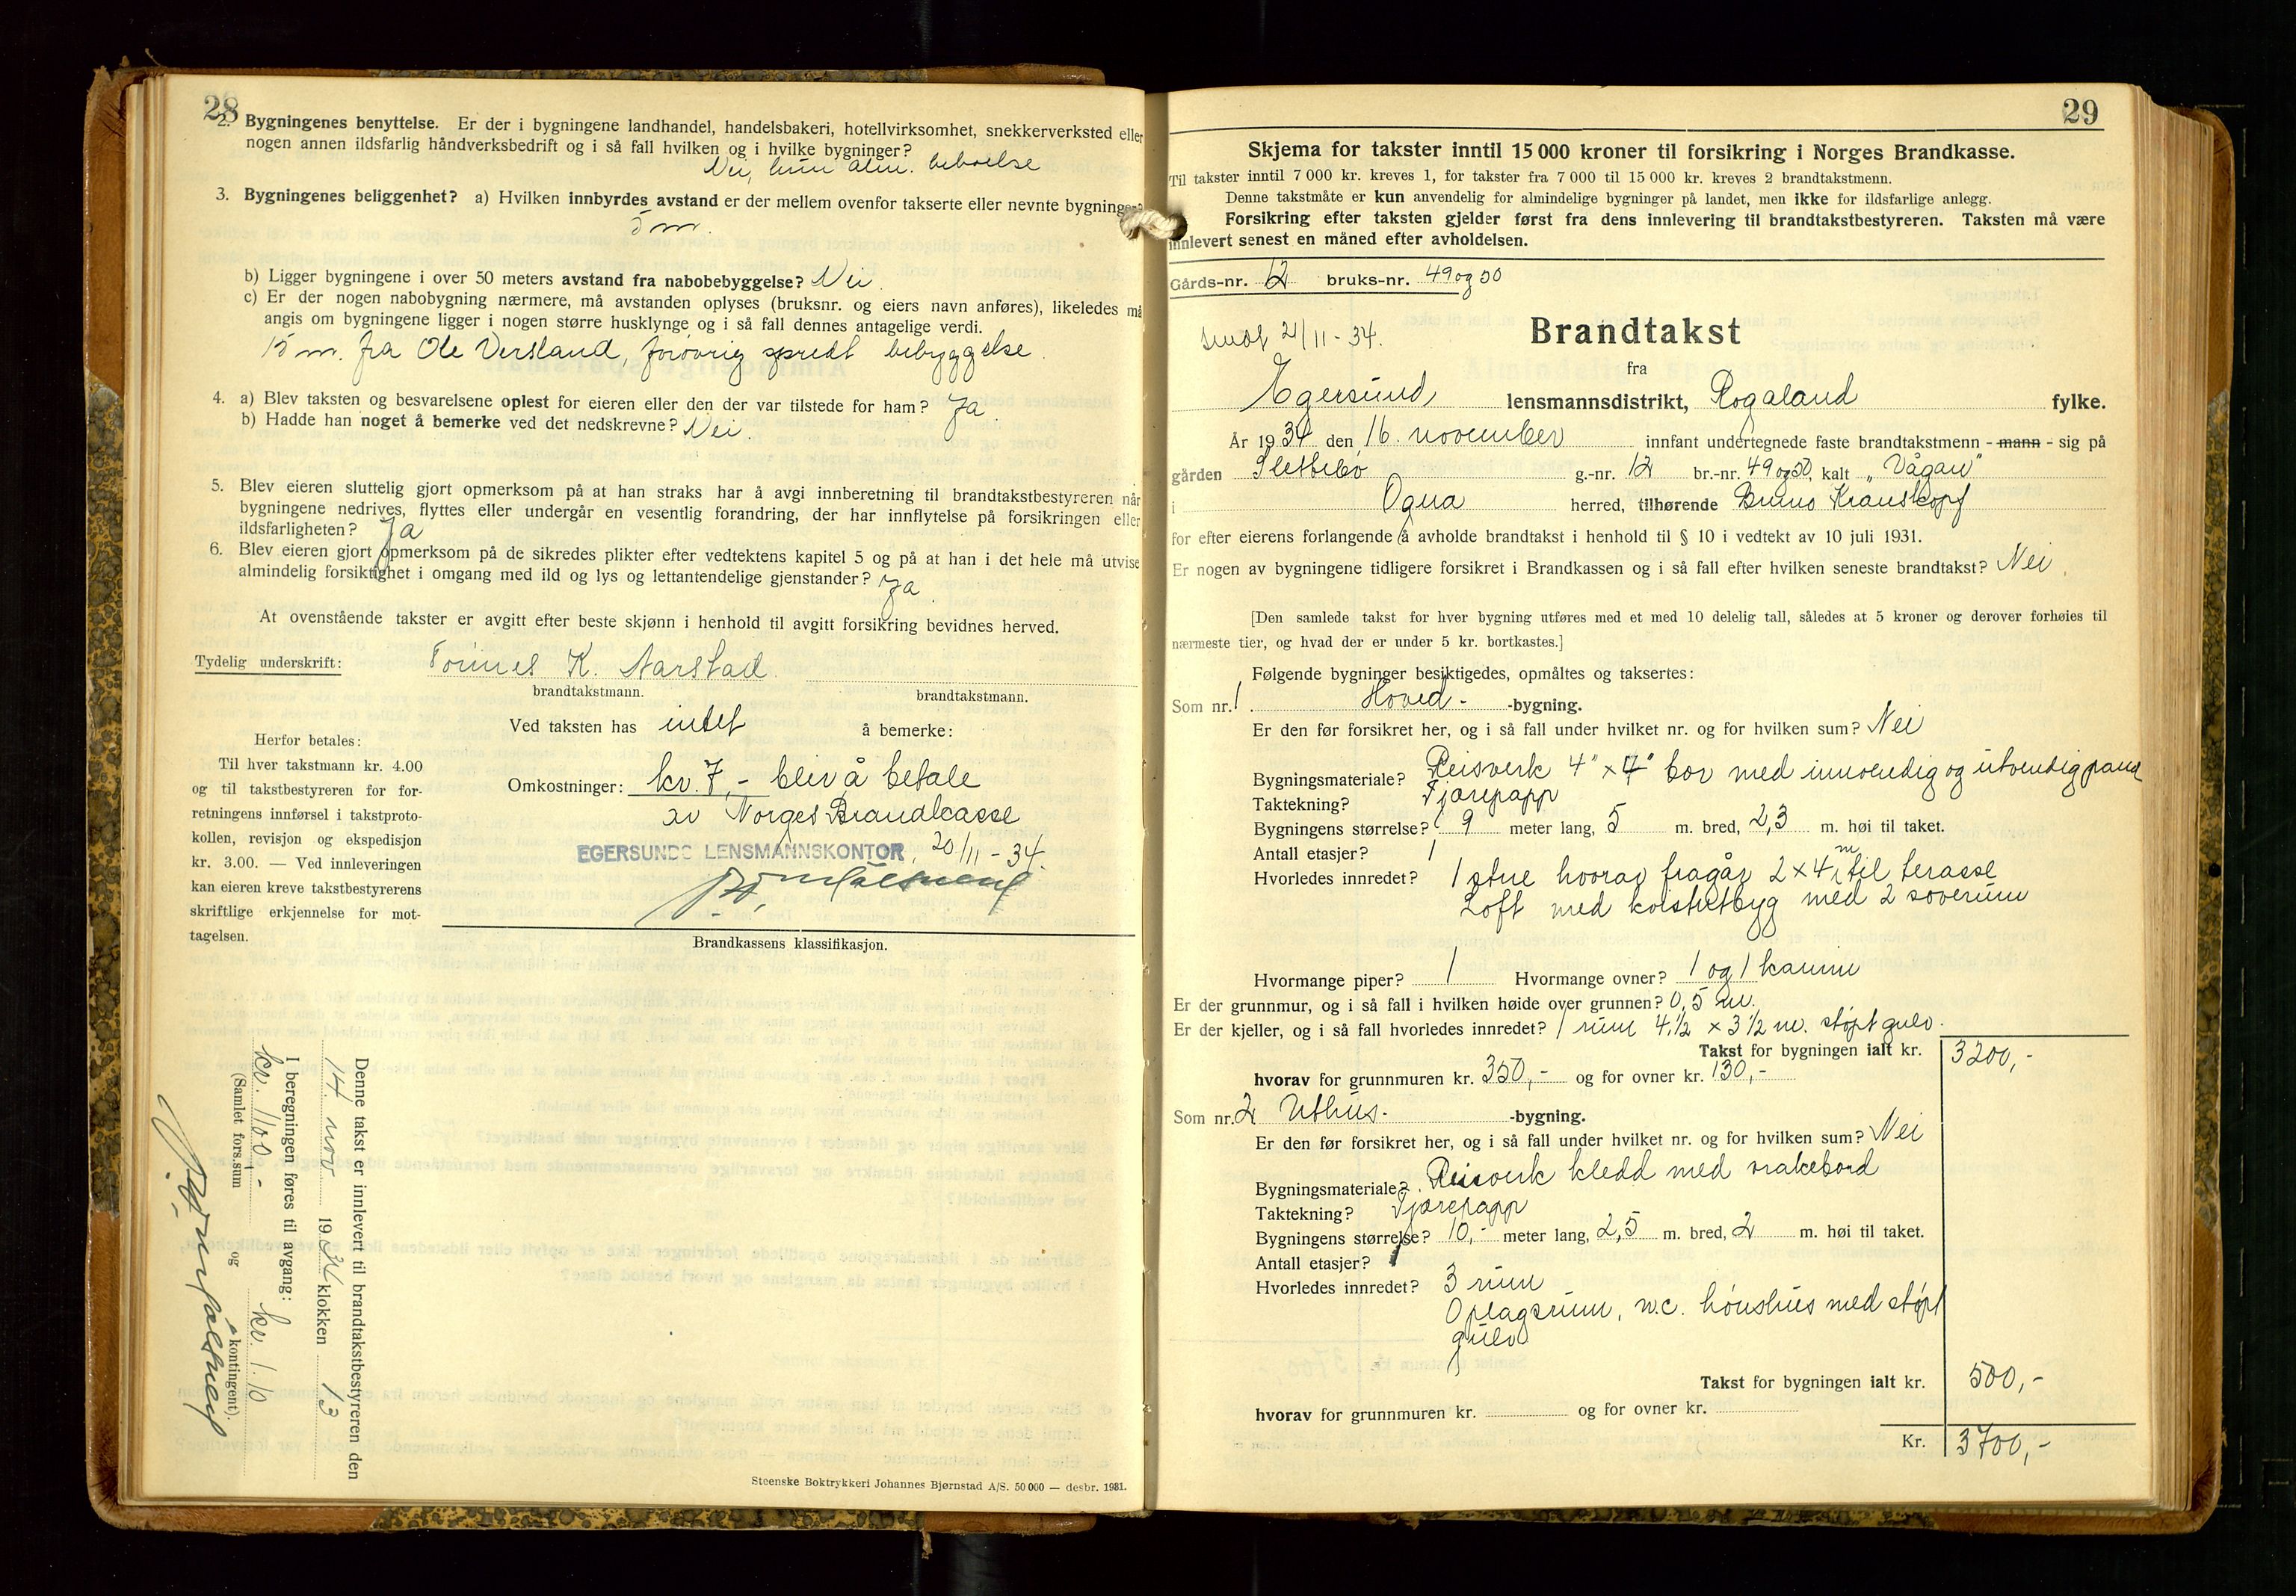 28
2. Bygningenes benyttelse. Er der i bygningene landhandel, handelsbakeri, hotellvirksomhet, snekkerverksted eller
nogen annen ildsfarlig håndverksbedrift og i så fall hvilken og i hvilke bygninger?
Nei, kun alm. beboelse
3. Bygningenes beliggenhet? a) Hvilken innbyrdes avstand er der mellem ovenfor takserte eller nevnte bygninger?
5 m.
b) Ligger bygningene i over 50 meters avstand fra nabobebyggelse? Nei.
c) Er der nogen nabobygning nærmere, må avstanden oplyses (bruksnr. og eiers navn anføres), likeledes må
angis om bygningene ligger i nogen større husklynge og i så fall dennes antagelige verdi.
15 m. fra Ole Versland, forøvrig spredt bebyggelse.
4. a) Blev taksten og besvarelsene oplest for eieren eller den der var tilstede for ham? Ja
b) Hadde han noget å bemerke ved det nedskrevne? Nei.
5. Blev eieren sluttelig gjort opmerksom på at han straks har å avgi innberetning til brandtakstbestyreren når
bygningene nedrives, flyttes eller undergår en vesentlig forandring, der har innflytelse på forsikringen eller
ildsfarligheten? Ja
6. Blev eieren gjort opmerksom på de sikredes plikter efter vedtektens kapitel 5 og på at han i det hele må utvise
almindelig forsiktighet i omgang med ild og lys og lettantendelige gjenstander? Ja.
At ovenstående takster er avgitt efter beste skjønn i henhold til avgitt forsikring bevidnes herved.
Tydelig underskrift: Tønnes K. Aarstad
brandtakstmann. brandtakstmann.
Ved taksten has intet å bemerke:
Herfor betales:
Til hver takstmann kr. 4.00
og til takstbestyreren for for-
retningens innførsel i takstproto-
kollen, revisjon og ekspedisjon
kr. 3.00. — Ved innleveringen
kan eieren kreve takstbestyrerens
skriftlige erkjennelse for mot-
tagelsen.
Omkostninger: kr. 7,- blir å betale
av Norges Brandkasse
EGERSUNDS LENSMANNSKONTOR, 20/11-34.
Brandkassens klassifikasjon.
Denne takst er innlevert til brandtakstbestyreren den
14. nov 1934 klokken 13
I beregningen føres til avgang:
kr. 1100,- kr. 1.10
(Samlet fors.sum og kontingent).
Steenske Boktrykkeri Johannes Bjørnstad A/S. 50 000 — desbr. 1931.
29
Skjema for takster inntil 15 000 kroner til forsikring i Norges Brandkasse.
Til takster inntil 7 000 kr. kreves 1, for takster fra 7 000 til 15 000 kr. kreves 2 brandtakstmenn.
Denne takstmåte er kun anvendelig for almindelige bygninger på landet, men ikke for ildsfarlige anlegg.
Forsikring efter taksten gjelder først fra dens innlevering til brandtakstbestyreren. Taksten må være
innlevert senest en måned efter avholdelsen.
Gårds-nr. 12 bruks-nr. 49 og 50
21/11-34.
Brandtakst
fra
Egersund lensmannsdistrikt, Rogaland fylke.
År 1934 den 16. november innfant undertegnede faste brandtakstmenn - mann - sig på
gården Slettebø g.-nr. 12 br.-nr. 49 og 50, kalt „Vågan"
i Ogna herred, tilhørende Bruno Krauskopf
for efter eierens forlangende å avholde brandtakst i henhold til § 10 i vedtekt av 10 juli 1931.
Er nogen av bygningene tidligere forsikret i Brandkassen og i så fall efter hvilken seneste brandtakst? Nei
[Den samlede takst for hver bygning utføres med et med 10 delelig tall, således at 5 kroner og derover forhøies til
nærmeste tier, og hvad der er under 5 kr. bortkastes.]
Følgende bygninger besiktigedes, opmåltes og taksertes:
Som nr. 1 Hoved- -bygning.
Er den før forsikret her, og i så fall under hvilket nr. og for hvilken sum? Nei
Bygningsmateriale? Reisverk 4" x 4" bor med innvendig og utvendig panel
Taktekning? Tjærepapp
Bygningens størrelse? 9 meter lang, 5 m. bred, 2,3 m. høi til taket.
Antall etasjer? 1
Hvorledes innredet? 1 stue hvorav fragår 2 x 4 m til terasse
Loft med kvistutbyg med 2 soverum
Hvormange piper? 1 Hvormange ovner? 1 og 1 kamin
Er der grunnmur, og i så fall i hvilken høide over grunnen? 0,5 m.
Er der kjeller, og i så fall hvorledes innredet? 1 rum 4,1/2 x 3 1/2 m. støpt gulv.
Takst for bygningen ialt kr. 3200,-
hvorav for grunnmuren kr. 350,- og for ovner kr. 130,-
Som nr. 2 Uthus- -bygning.
Er den før forsikret her, og i så fall under hvilket nr. og for hvilken sum? Nei
Bygningsmateriale? Reisverk kledd med vrakbord
Taktekning? Tjærepapp
Bygningens størrelse? 10,- meter lang, 2,5 m. bred, 2 m. høi til taket.
Antall etasjer? 1
Hvorledes innredet? 3 rum
Oplagsrum, w.c. hønshus med støpt
gulv
Takst for bygningen ialt kr. 500,-
hvorav for grunnmuren kr. og for ovner kr.
Kr. 3700,-